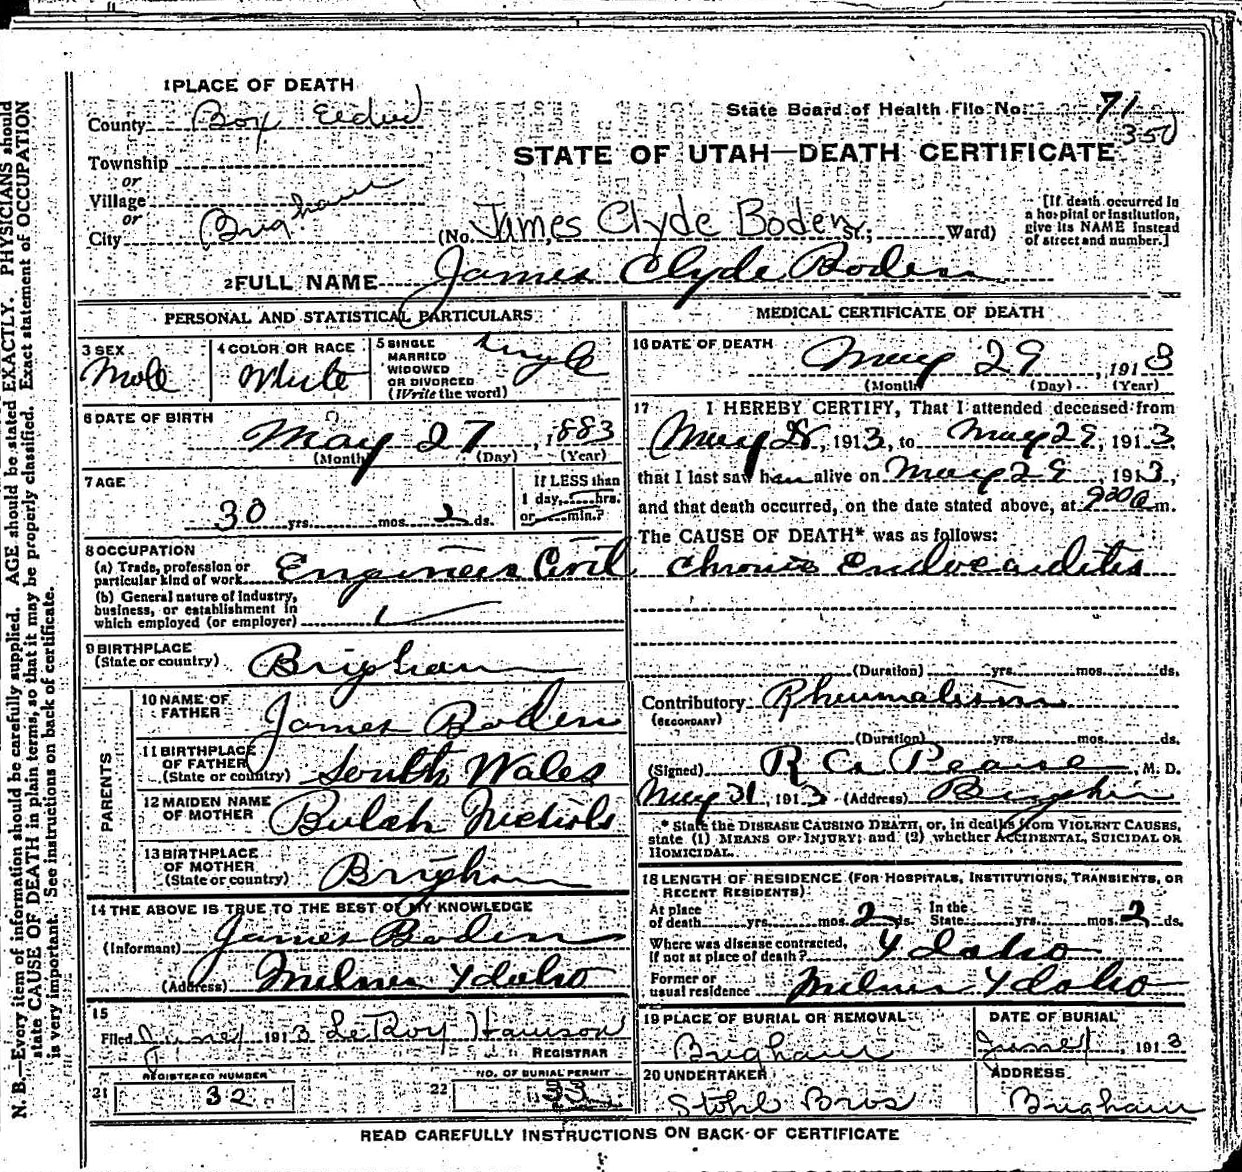 1 PLACE OF DEATH
County Box Elder
State Board of Health File No. 71
350
STATE OF UTAH—DEATH CERTIFICATE
Township
or
Village
or
City Brigham
(No. James Clyde Boden St.; Ward)
[If death occurred in a hospital or institution, give its NAME instead of street and number.]
2 FULL NAME James Clyde Boden
PERSONAL AND STATISTICAL PARTICULARS
3 SEX Male
4 COLOR OR RACE White
5 SINGLE MARRIED WIDOWED OR DIVORCED (Write the word) Single
6 DATE OF BIRTH May 27, 1883
(Month) (Day) (Year)
7 AGE 30 yrs. mos. 2 ds.
If LESS than 1 day, hrs. or min.?
8 OCCUPATION
(a) Trade, profession or particular kind of work Engineer Civil
(b) General nature of industry, business, or establishment in which employed (or employer)
9 BIRTHPLACE (State or country) Brigham
PARENTS
10 NAME OF FATHER James Boden
11 BIRTHPLACE OF FATHER (State or country) South Wales
12 MAIDEN NAME OF MOTHER Bulah Nichols
13 BIRTHPLACE OF MOTHER (State or country) Brigham
14 THE ABOVE IS TRUE TO THE BEST OF MY KNOWLEDGE
(Informant) James Boden
(Address) Milner Ydaho
15
Filed June 1 1913 LeRoy Harrison
REGISTRAR
REGISTERED NUMBER
21 32
NO. OF BURIAL PERMIT
22 33
MEDICAL CERTIFICATE OF DEATH
16 DATE OF DEATH May 29, 1913
(Month) (Day) (Year)
17 I HEREBY CERTIFY, That I attended deceased from
May 28, 1913, to May 29, 1913,
that I last saw him alive on May 29 1913,
and that death occurred, on the date stated above, at 930 a m.
The CAUSE OF DEATH* was as follows:
Chronic Endocarditis
(Duration) yrs. mos. ds.
Contributory (SECONDARY) Rheumatism
(Duration) yrs. mos. ds.
(Signed) R A Pearse, M. D.
May 31, 1913 (Address) Brigham
* State the DISEASE CAUSING DEATH, or, in deaths from VIOLENT CAUSES, state (1) MEANS OF INJURY; and (2) whether ACCIDENTAL, SUICIDAL OR HOMICIDAL.
18 LENGTH OF RESIDENCE (FOR HOSPITALS, INSTITUTIONS, TRANSIENTS, OR RECENT RESIDENTS)
At place of death yrs. mos. 2 ds. In the State yrs. mos. 2 ds.
Where was disease contracted, if not at place of death? Ydaho
Former or usual residence Milner Ydaho
19 PLACE OF BURIAL OR REMOVAL Brigham
DATE OF BURIAL June 1, 1913
20 UNDERTAKER Stohl Bros
ADDRESS Brigham
READ CAREFULLY INSTRUCTIONS ON BACK OF CERTIFICATE
N. B.—Every item of information should be carefully supplied. AGE should be stated EXACTLY. PHYSICIANS should
state CAUSE OF DEATH in plain terms, so that it may be properly classified. Exact statement of OCCUPATION
is very important. See instructions on back of certificate.